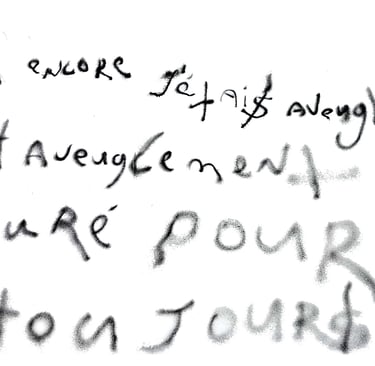 encore J'étais aveugl
aveuglement
uré pour
toujours